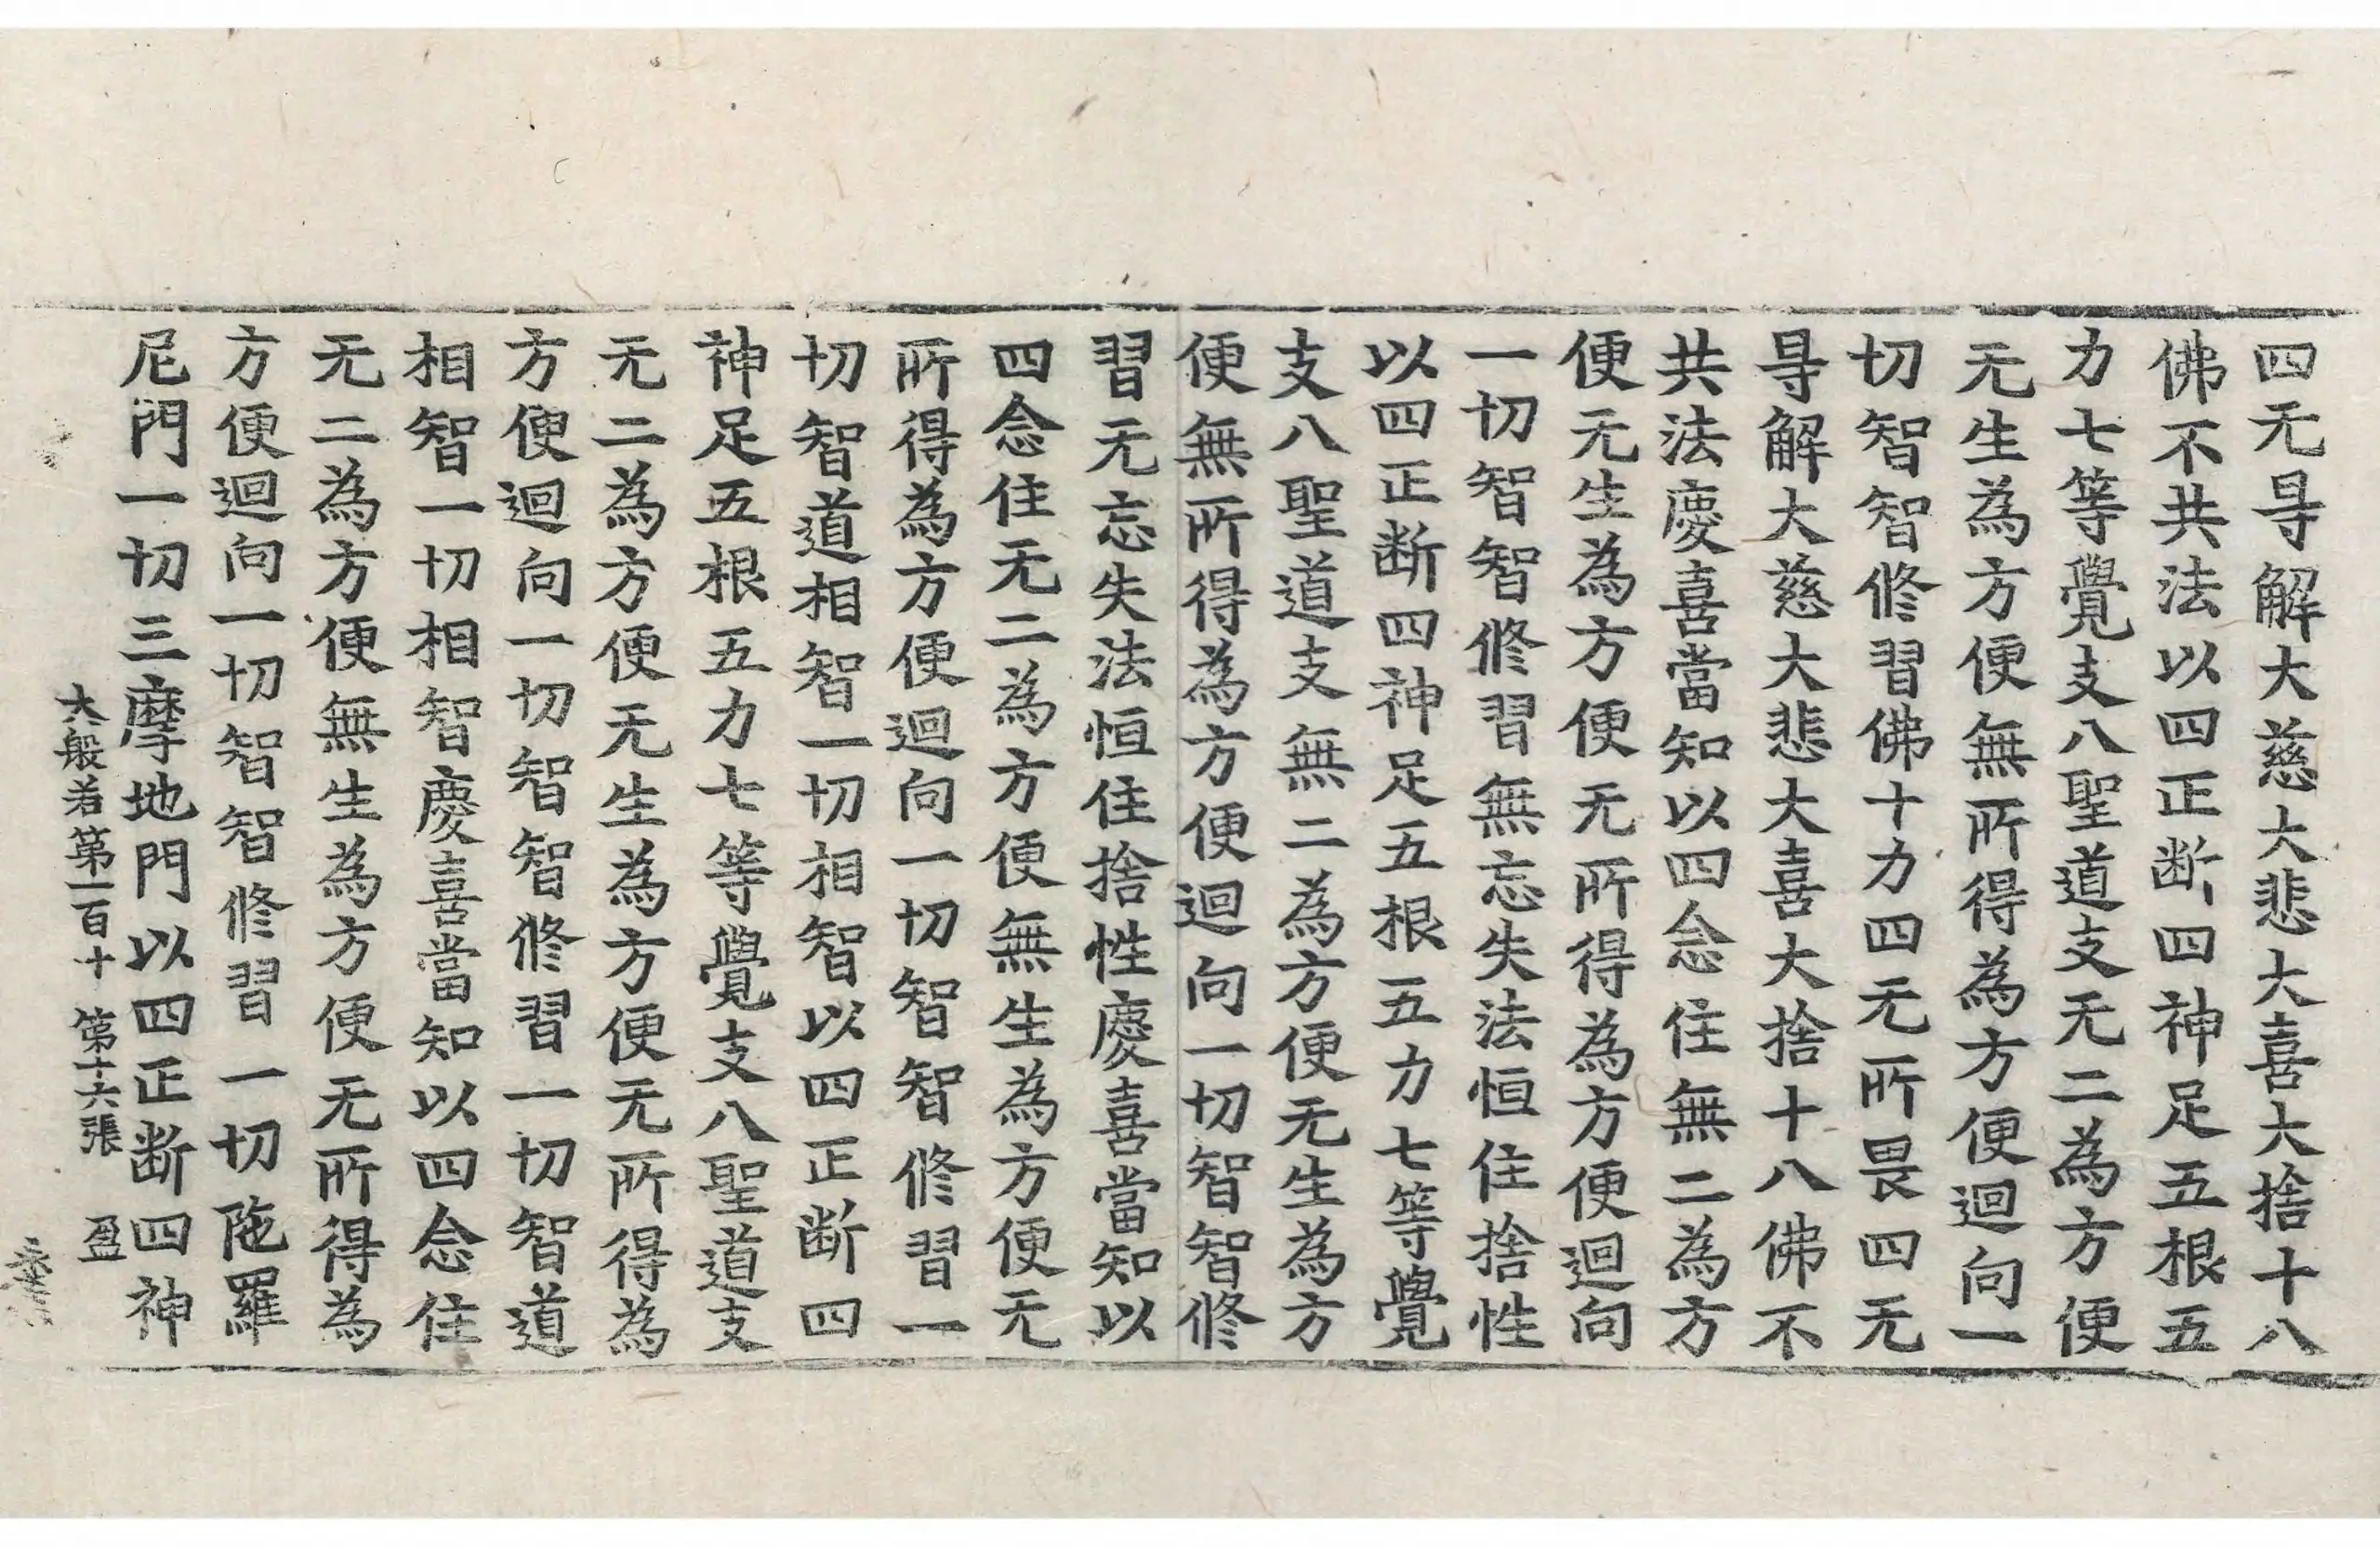 四无㝵解大慈大悲大喜大捨十八
佛不共法以四正断四神足五根五
力七等覺支八聖道支无二為方便
无生為方便無所得為方便迴向一
切智智修習佛十力四无所畏四无
㝵解大慈大悲大喜大捨十八佛不
共法慶喜當知以四念住無二為方
便无生為方便无所得為方便迴向
一切智智修習無忘失法恒住捨性
以四正断四神足五根五力七等覺
支八聖道支無二為方便无生為方
便無所得為方便迴向一切智智修
習无忘失法恒住捨性慶喜當知以
四念住无二為方便無生為方便无
所得為方便迴向一切智智修習一
切智道相智一切相智以四正断四
神足五根五力七等覺支八聖道支
无二為方便无生為方便无所得為
方便迴向一切智智修習一切智道
相智一切相智慶喜當知以四念住
无二為方便無生為方便无所得為
方便迴向一切智智修習一切陁羅
尼門一切三摩地門以四正断四神
大般若第一百十 第十六張 盈